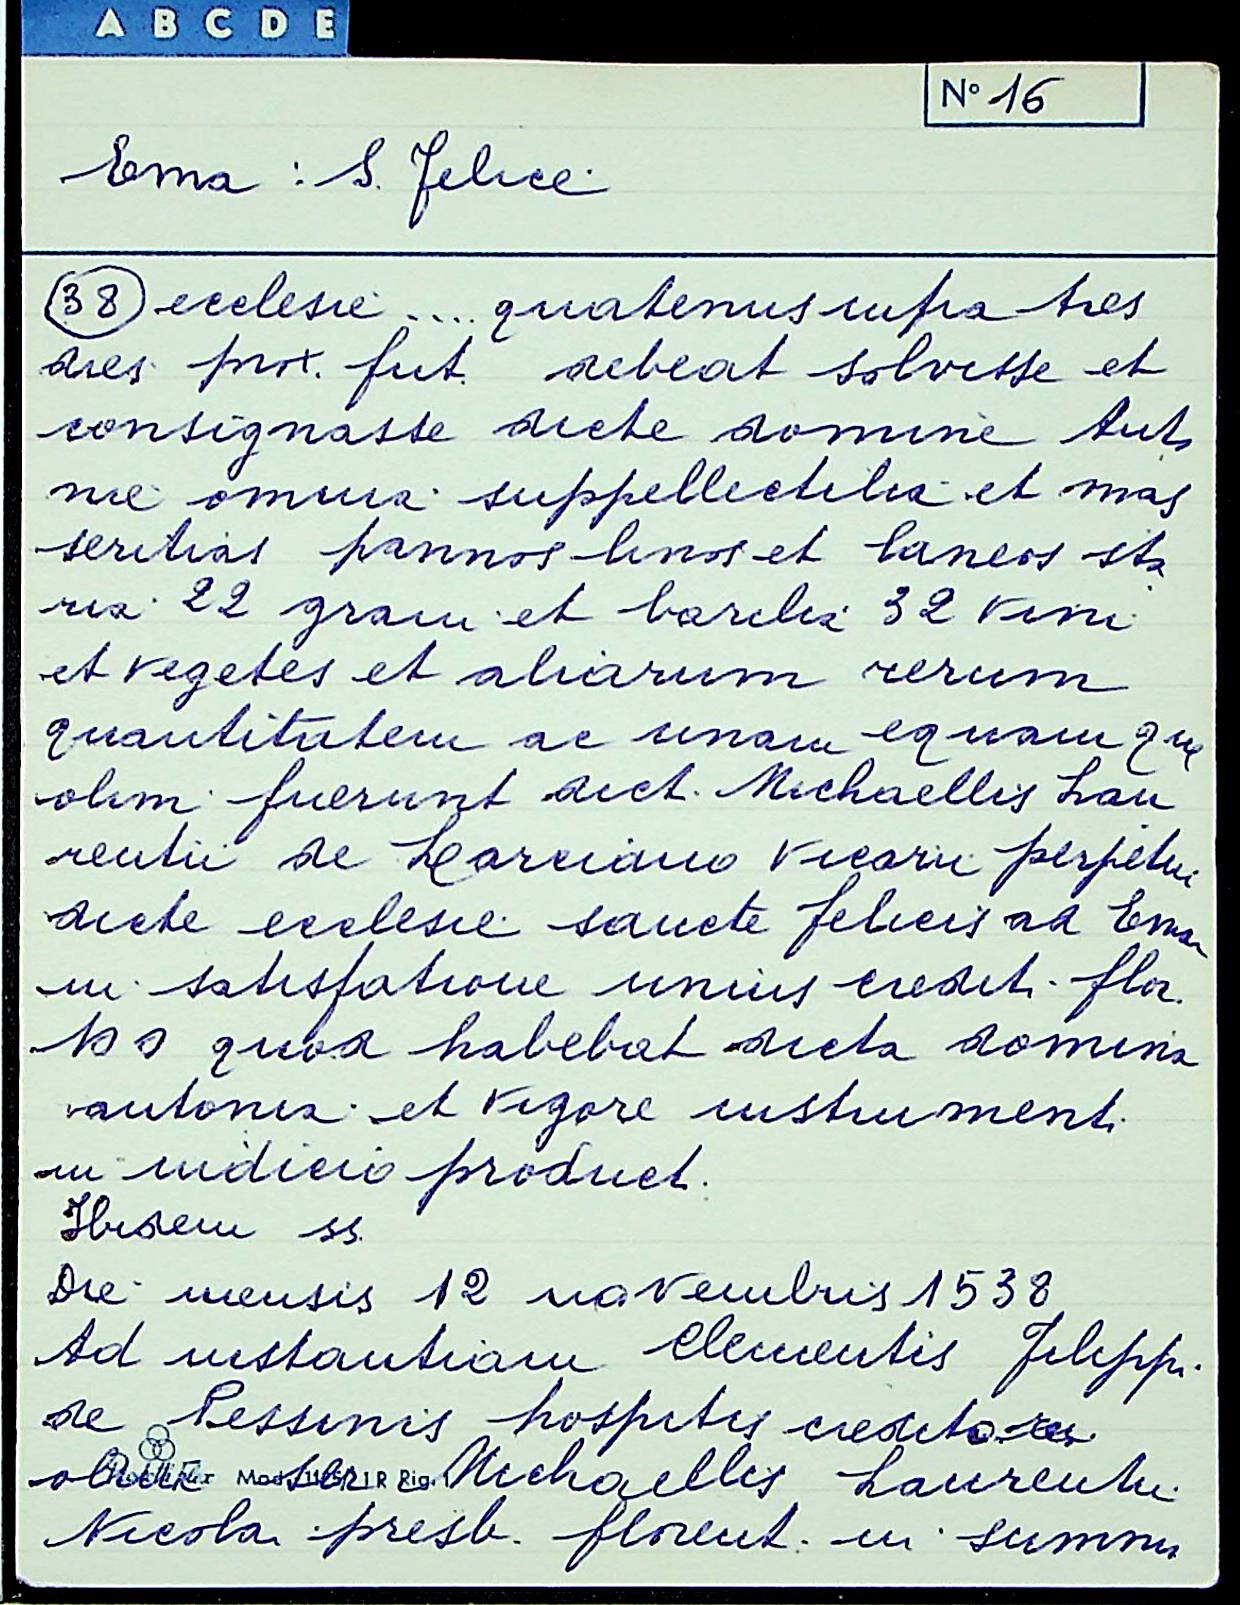 A B C D E
Nº 16
Ema : S. Felice
38 ecclesie .... quatenus infra tres
dies prox. fut. debeat solvisse et
consignasse dicte domine Anto
nie omnia suppellectilia et mas
seritias pannos linos et laneos sta
ria 22 grani et barilia 32 vini
et vegetes et aliarum rerum
quantitatem ac unam equam que
olim fuerunt dict. Michaellis Lau
rentii de Larciano vicarii perpetui
dicte ecclesie sancte felicis ad Emam
in satisfatione unius credit. flor.
quod habebat dicta domina
antonia et vigore instrument.
in iudicio product.
Ibidem ss.
Die mensis 12 novembris 1538
Ad instantiam Clementis Filippi
de Pessinis hospitis creditores
olim ser Michaellis Laurentii
Mod. R Rig.
Nicolai presb. florent. in summa